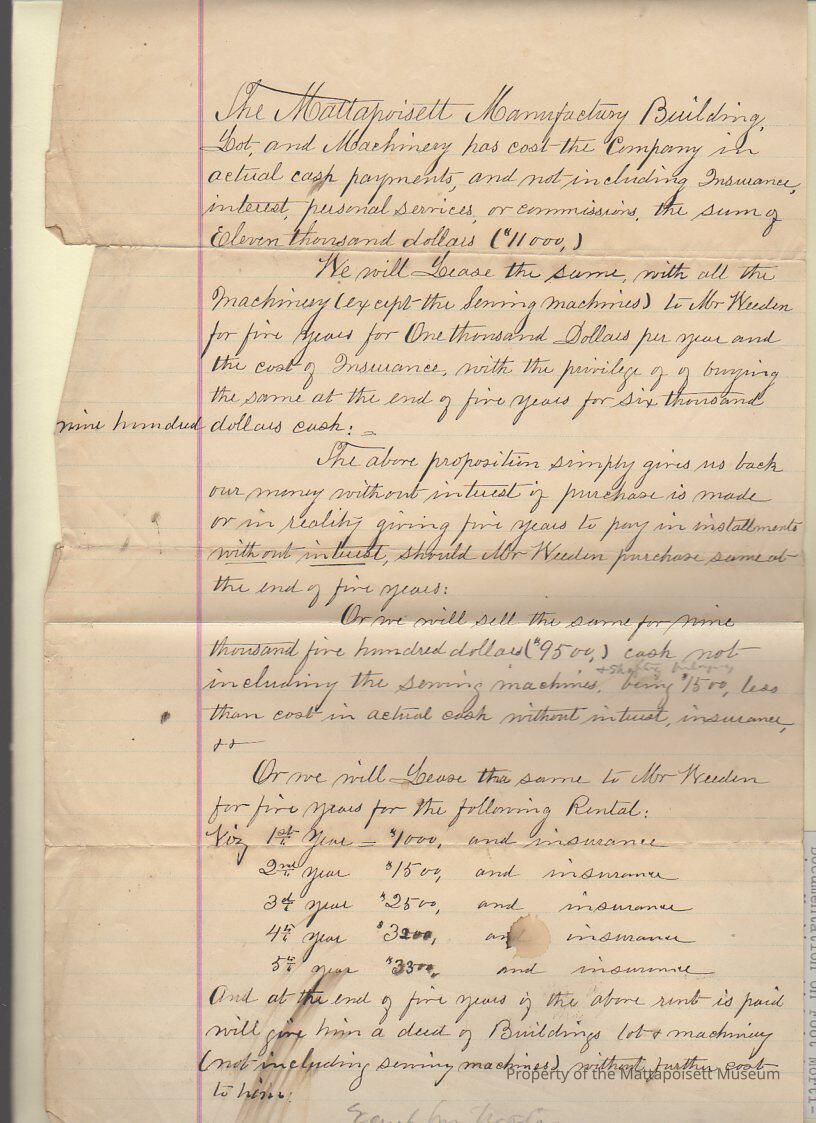 The Mattapoisett Manufactory Building,
Lot, and Machinery has cost the Company in
actual cash payments, and not including Insurance,
interest, personal services, or commissions, the sum of
Eleven thousand dollars ($11000,)
We will Lease the same, with all the
Machinery (except the Sewing machines) to Mr Weeden
for five years for One thousand Dollars per year and
the cost of Insurance, with the privilege of of buying
the same at the end of five years for six thousand
nine hundred dollars cash:
The above proposition simply gives us back
our money without interest if purchase is made
or in reality giving five years to pay in installments
without interest, should Mr Weeden purchase same at
the end of five years:
Or we will sell the same for nine
thousand five hundred dollars ($9500,) cash not
+ Shafting belonging
including the sewing machines, being $1500, less
than cost in actual cash without interest, insurance,
++
Or we will Lease the same to Mr Weeden
for five years for the following Rental:
Viz 1st Year - $1000, and insurance
2nd year $1500, and insurance
3d year $2500, and insurance
4th year $3200, and insurance
5th year $3300, and insurance
And at the end of five years if the above rent is paid
will give him a deed of Buildings lot & machinery
(not including sewing machines) without further cost
to him:
Property of the Mattapoisett Museum